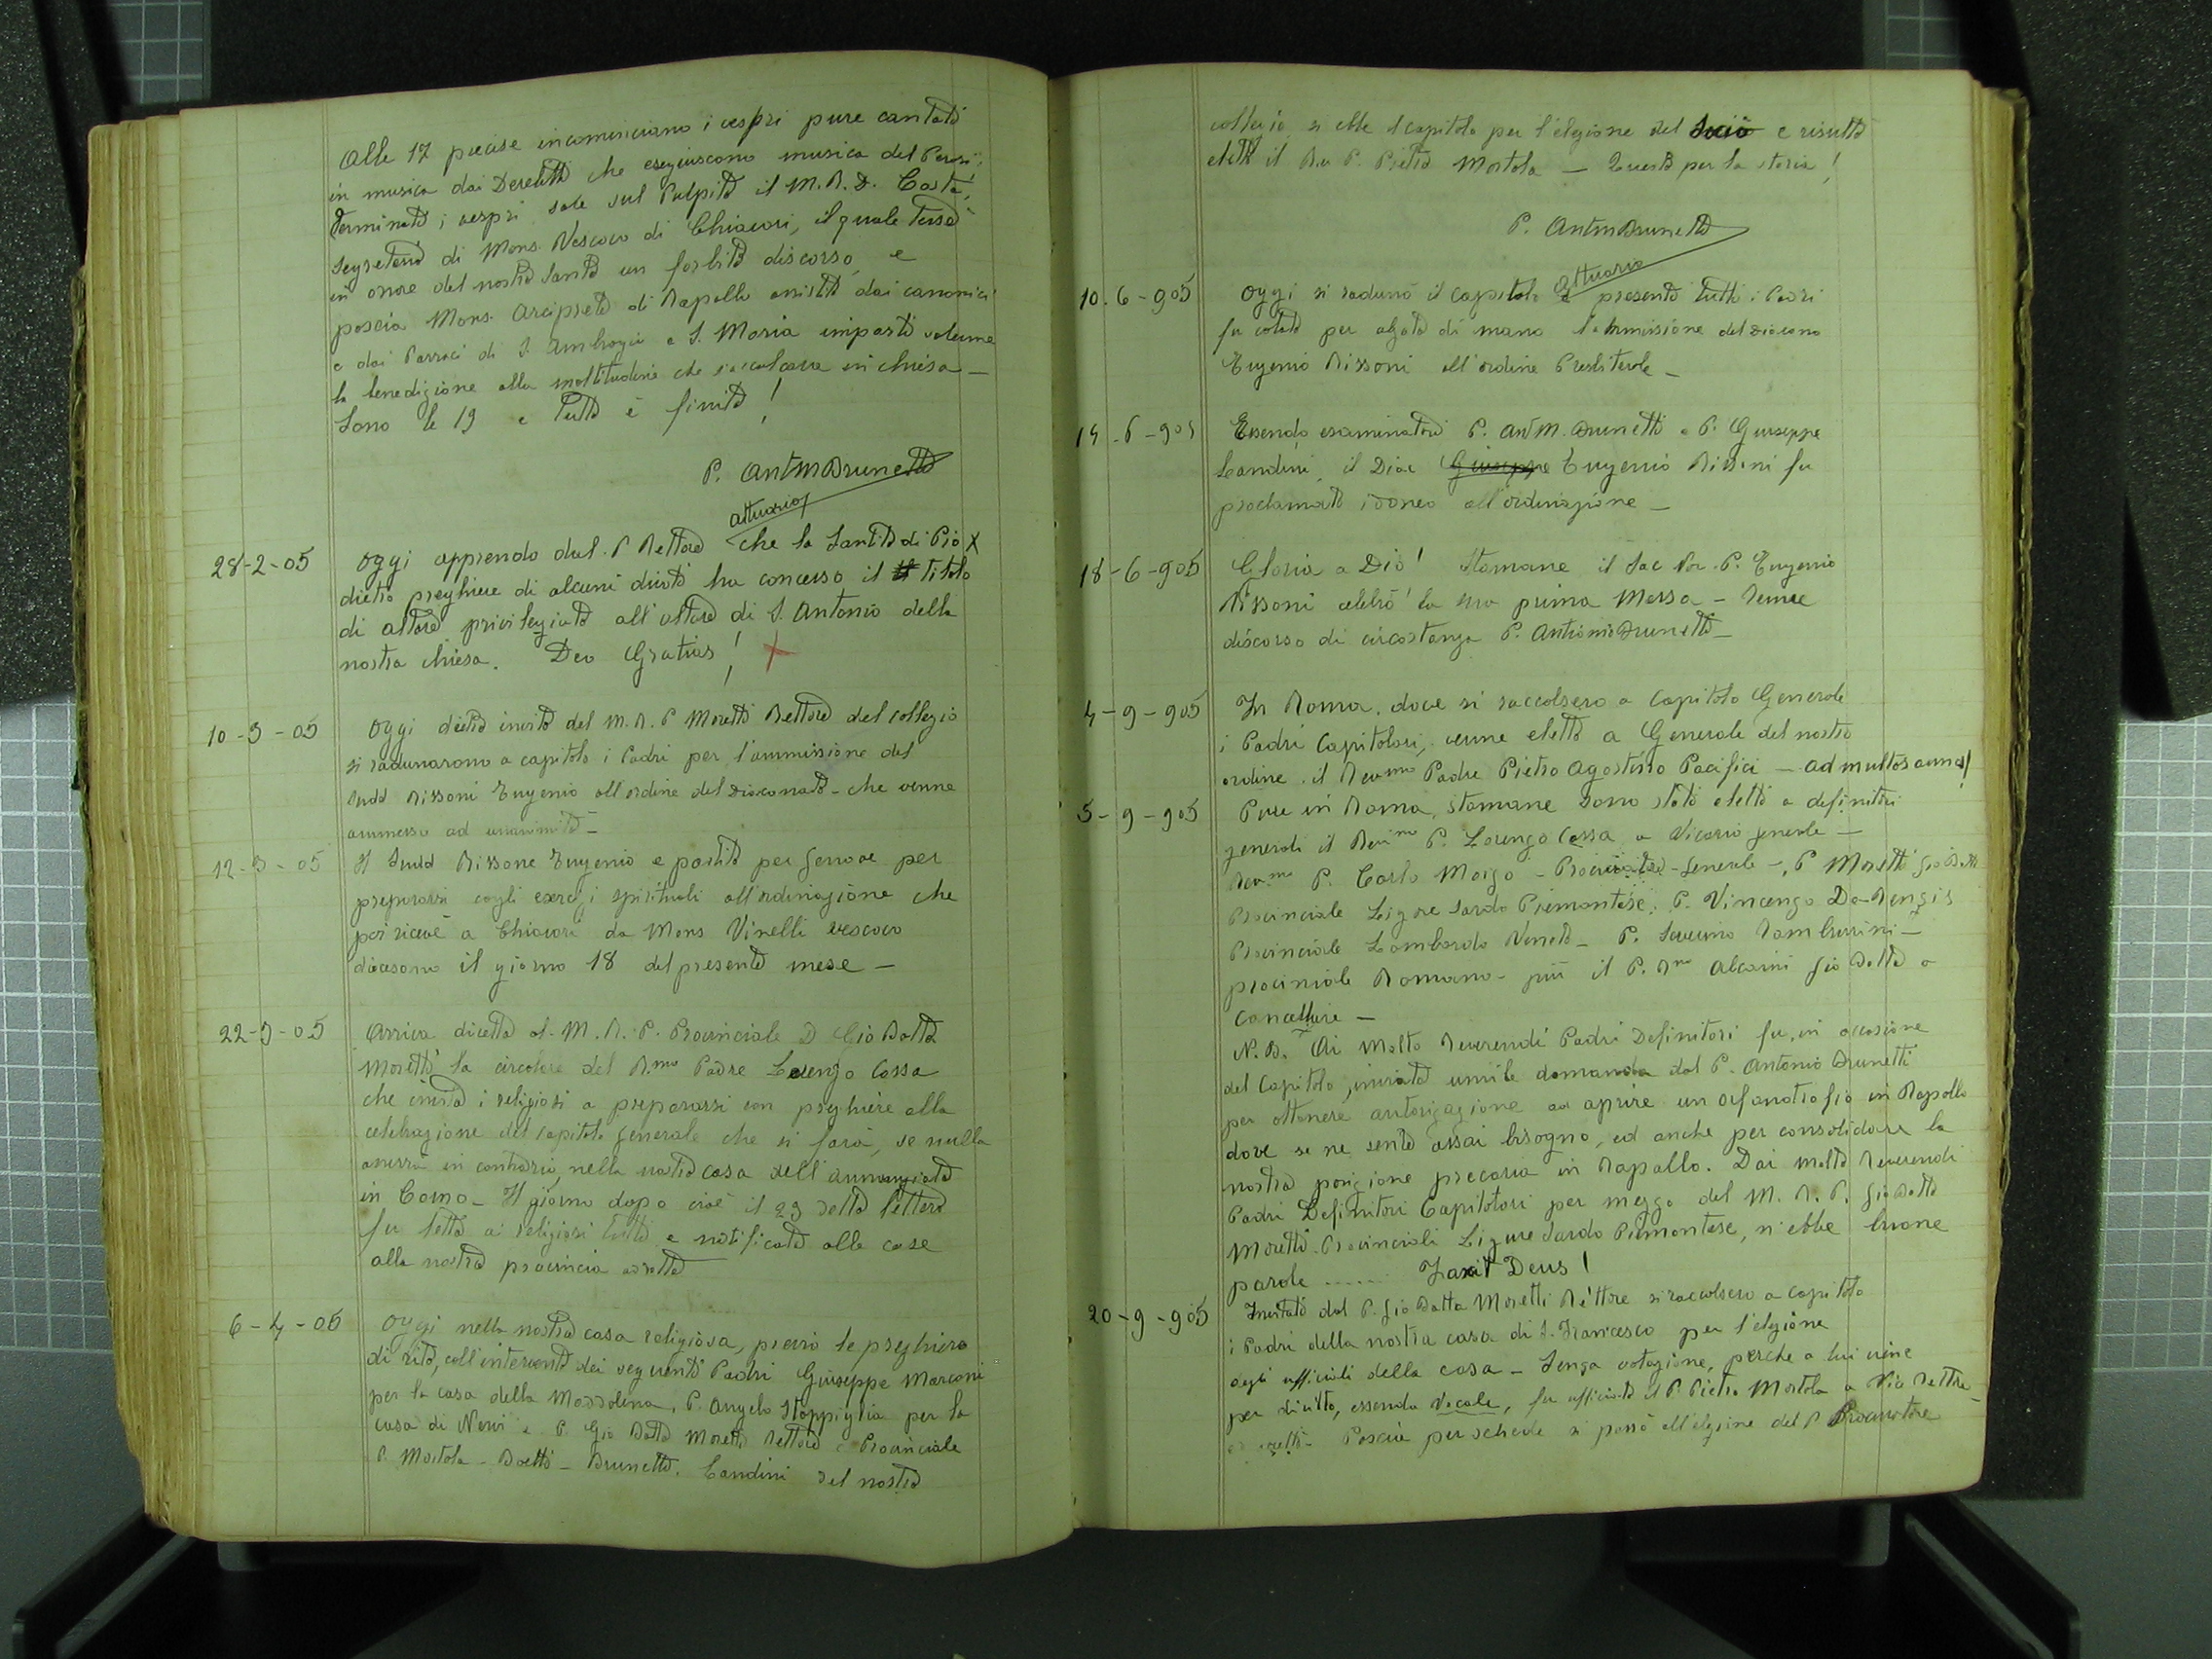 Alle 17 precise incominciano i vespri pure cantati
in musica dai Derelitti che eseguiscono musica del Perosi;
Terminati i vespri sale sul Pulpito il M. R. D. Costa,
Segretario di Mons. Vescovo di Chiavari, il quale tessè
in onore del nostro Santo un forbito discorso, e
poscia Mons. Arciprete di Rapallo assistito dai canonici
e dai Parroci di S. Ambrogio e S. Maria impartì solenne
la benedizione alla moltitudine che s'accalcava in chiesa —
Sono le 19 e tutto è finito!
P. Ant M Brunetti
attuario
28-2-05 Oggi apprendo dal P Rettore che la Santità di Pio X
dietro preghiere di alcuni divoti ha concesso il titolo
di altare privilegiato all'altare di S. Antonio della
nostra chiesa. Deo Gratias!
10-3-05 Oggi dietro invito del M. R. P Moretti Rettore del collegio
si radunarono a capitolo i Padri per l'ammissione del
Sudd Rissoni Eugenio all'ordine del Diaconato - che venne
ammesso ad unanimità —
12-3-05 Il Sudd Rissone Eugenio è partito per Genova per
prepararsi cogli esercizi spirituali all'ordinazione che
poi riceve a Chiavari da Mons Vinelli vescovo
diocesano il giorno 18 del presente mese —
22-3-05 Arriva diretta al M. R. P. Provinciale D Gio Batta
Moretti la circolare del R.mo Padre Lorenzo Cossa
che invita i religiosi a prepararsi con preghiere alla
celebrazione del capitolo generale che si farà, se nulla
avverrà in contrario, nella nostra casa dell'Annunziata
in Como — Il giorno dopo cioè il 23 detta lettera
fu letta ai religiosi tutti e notificata alle case
alla nostra provincia
6-4-05 Oggi nella nostra casa religiosa, previo le preghiere
di rito, coll'intervento dei seguenti Padri Giuseppe Marconi
per la casa della Maddalena, P. Angelo Stoppiglia per la
casa di Nervi e P. Gio Batta Moretti Rettore e Provinciale
P. Mortola - Boetti - Brunetti. Landini del nostro
collegio, si ebbe il capitolo per l'elezione del Socio e risultò
eletto il P. Pietro Mortola — Questo per la storia!
P. Ant M Brunetti
attuario
10-6-905 Oggi si radunò il capitolo e presenti tutti i Padri
fu votato per alzata di mano l'ammissione del Diacono
Eugenio Rissoni all'ordine Presbiterale —
14-6-905 Essendo esaminatori P. Ant M. Brunetti e P. Giuseppe
Landini, il Diac Giuseppe Eugenio Rissoni fu
proclamato idoneo all'ordinazione —
18-6-905 Gloria a Dio! Stamane il Sac P. Eugenio
Rissoni celebrò la sua prima Messa — Tenne
discorso di circostanza P. Antonio Brunetti —
4-9-905 In Roma, dove si raccolsero a Capitolo Generale
i Padri Capitolari, venne eletto a Generale del nostro
ordine il Rev.mo Padre Pietro Agostino Pacifici — ad multos annos!
5-9-905 Pure in Roma, stamane sono stati eletti a definitori
generali il Rev.mo P. Lorenzo Cossa a Vicario generale —
Rev.mo P. Carlo Moizo - Procuratore - generale -, P Moretti Gio Batt
Provinciale Ligure Sardo Piemontese, P. Vincenzo De-Renzis
Provinciale Lombardo Veneto - P. Severino Tamburrini —
provinciale Romano - più il P. R.mo Alcaini Gio Batta a
cancelliere —
N. B. Ai Molto Reverendi Padri Definitori fu, in occasione
del Capitolo, inviata umile domanda dal P. Antonio Brunetti
per ottenere autorizzazione ad aprire un orfanotrofio in Rapallo
dove se ne sente assai bisogno, ed anche per consolidare la
nostra posizione precaria in Rapallo. Dai molto Reverendi
Padri Definitori Capitolari per mezzo del M. R. P. Gio Batta
Moretti Provinciali Ligure Sardo Piemontese, n'ebbe buone
parole ...... Faxit Deus!
20-9-905 Invitati dal P. Gio Batta Moretti Rettore si raccolsero a capitolo
i Padri della nostra casa di S. Francesco per l'elezione
degli ufficiali della casa — Senza votazione, perche a lui viene
per diritto, essendo Vocale, fu il P. Pietro Mortola a Vice Rettore
Poscia per schede si passò all'elezione del P Procuratore